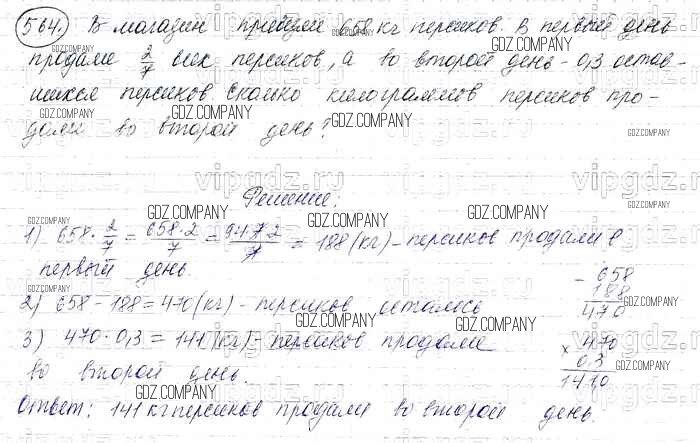 564. В магазин привезли 658 кг персиков. В первый день
продали 2/7 всех персиков, а во второй день - 0,3 остав-
шихся персиков. Сколько килограммов персиков про-
дали во второй день?
Решение:
1) 658 · 2/7 = 658·2/7 = 94·7·2/7 = 188 (кг) - персиков продали в
первый день.
2) 658 - 188 = 470 (кг) - персиков осталось
3) 470 · 0,3 = 141 (кг) - персиков продали
во второй день.
Ответ: 141 кг персиков продали во второй день.
- 658
188
470
× 470
0,3
141,0
GDZ.COMPANY
vipgdz.ru